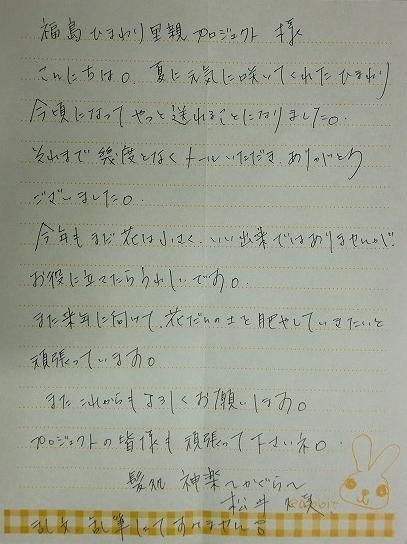 福島ひまわり里親プロジェクト 様
こんにちは。夏に元気に咲いてくれたひまわり
今頃になってやっと送れることになりました。
それまで幾度となくメールいただき、ありがとう
ございました。
今年もまだ花は小さく、いい出来ではありませんが
お役に立てたらうれしいです。
また来年に向けて、花だんの土を肥やしていきたいと
頑張っています。
またこれからもよろしくお願いします。
プロジェクトの皆様も頑張って下さいネ。
髪処 神楽〜かぐら〜
松井
乱文 乱筆にてすみません